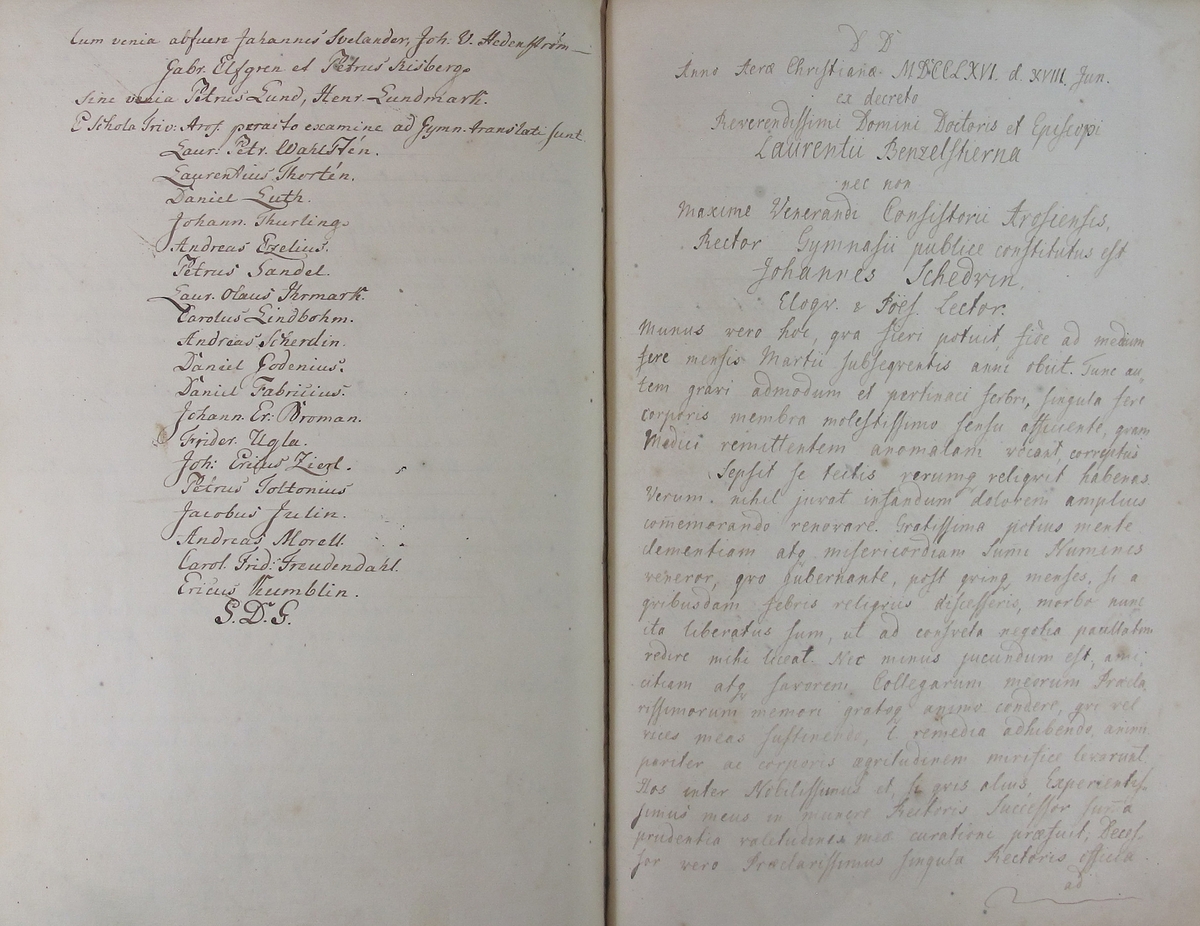 Cum venia abfuere Johannes Svelander, Joh. V. Hedenström
Gabr. Elfgren et Petrus Risberg.
sine venia Petrus Lund, Henr. Lundmark.
E Schola Triv: Aros. peracto examine ad Gymn. translati sunt
Laur. Petr. Wahlstén.
Laurentius Thortén.
Daniel Luth.
Johann. Thurling.
Andreas Erzelius.
Petrus Sandel.
Laur. Olaus Ihrmark.
Carolus Lindbohm.
Andreas Scherdin.
Daniel Godenius.
Daniel Fabricius.
Johann. Er: Broman.
Frider. Ugla.
Joh: Ericus Zierl.
Petrus Toltonius
Jacobus Julin.
Andreas Morell.
Carol. Frid: Freudendahl.
Ericus Humblin.
S. D. G.
D D
Anno Aeræ Christianæ MDCCLXVI. d. XVIII Jun.
ex decreto
Reverendissimi Domini Doctoris et Episcopi
Laurentii Benzelstierna
nec non
Maxime Venerandi Consistorii Arosiensis,
Rector Gymnasii publice constitutus est
Johannes Schedvin,
Eloqv. & Poës. Lector.
Munus vero hoc, qva fieri potuit, fide ad medium
fere mensis Martii subseqventis anni obiit. Tunc au
tem gravi admodum et pertinaci febri, singula fere
corporis membra molestissimo sensu afficiente, qvam
Medici remittentem anomalam vocant, correptus
Sepsit se tectis rerumq reliqvit habenas.
Verum nihil juvat infandum dolorem amplius
com̄emorando renovare. Gratissima potius mente
clementiam atq misericordiam Sum̄i Numinis
veneror, qvo gubernante, post qvinq menses, si a
qvibusdam febris reliqviis discesseris, morbo nunc
ita liberatus sum, ut ad consveta negotia paullatim
redire mihi liceat. Nec minus jucundum est, ami
citiam atq favorem Collegarum meorum Præcla
rissimorum memori gratoq animo condere, qvi vel
vices meas sustinendo, l. remedia adhibendo, animi
pariter ac corporis ægritudinem mirifice levarunt.
Hos inter Nobilissimus et, si qvis alius, Experientis
simus meus in munere Rectoris Successor sum̄a
prudentia valetudinis meæ curationi præfuit, Deces
sor vero Præclarissimus singula Rectoris officia
ad